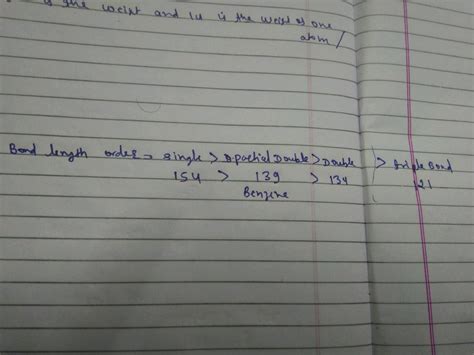 is the weist and 14 is the weist of one
atom/
Bond length order → single > partial Double > Double > Triple Bond
154 > 139 > 134 121
Benzine